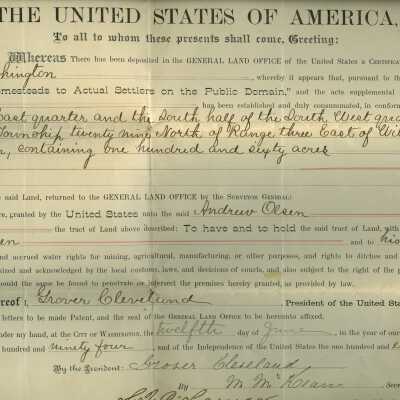 THE UNITED STATES OF AMERICA,
To all to whom these presents shall come, Greeting:
Whereas There has been deposited in the GENERAL LAND OFFICE of the United States a CERTIFICA
hington , whereby it appears that, pursuant to the
omesteads to Actual Settlers on the Public Domain," and the acts supplemental
has been established and duly consummated, in conform
east quarter and the South half of the South West qua
Township twenty nine North of Range three East of Wil
n, containing one hundred and sixty acres
e said Land, returned to the GENERAL LAND OFFICE by the SURVEYOR GENERAL:
re, granted by the United States unto the said Andrew Olsen
the tract of Land above described: To have and to hold the said tract of Land, with
en and to his
nd accrued water rights for mining, agricultural, manufacturing, or other purposes, and rights to ditches and
nized and acknowledged by the local customs, laws, and decisions of courts, and also subject to the right of the p
ould the same be found to penetrate or intersect the premises hereby granted, as provided by law.
reof I, Grover Cleveland , President of the United Stat
letters to be made Patent, and the seal of the GENERAL LAND OFFICE to be hereunto affixed.
under my hand, at the CITY OF WASHINGTON, the twelfth day of June , in the year of our
hundred and ninety four , and of the Independence of the United States the one hundred and e
By the President: Grover Cleveland
By M. McKean , Sec